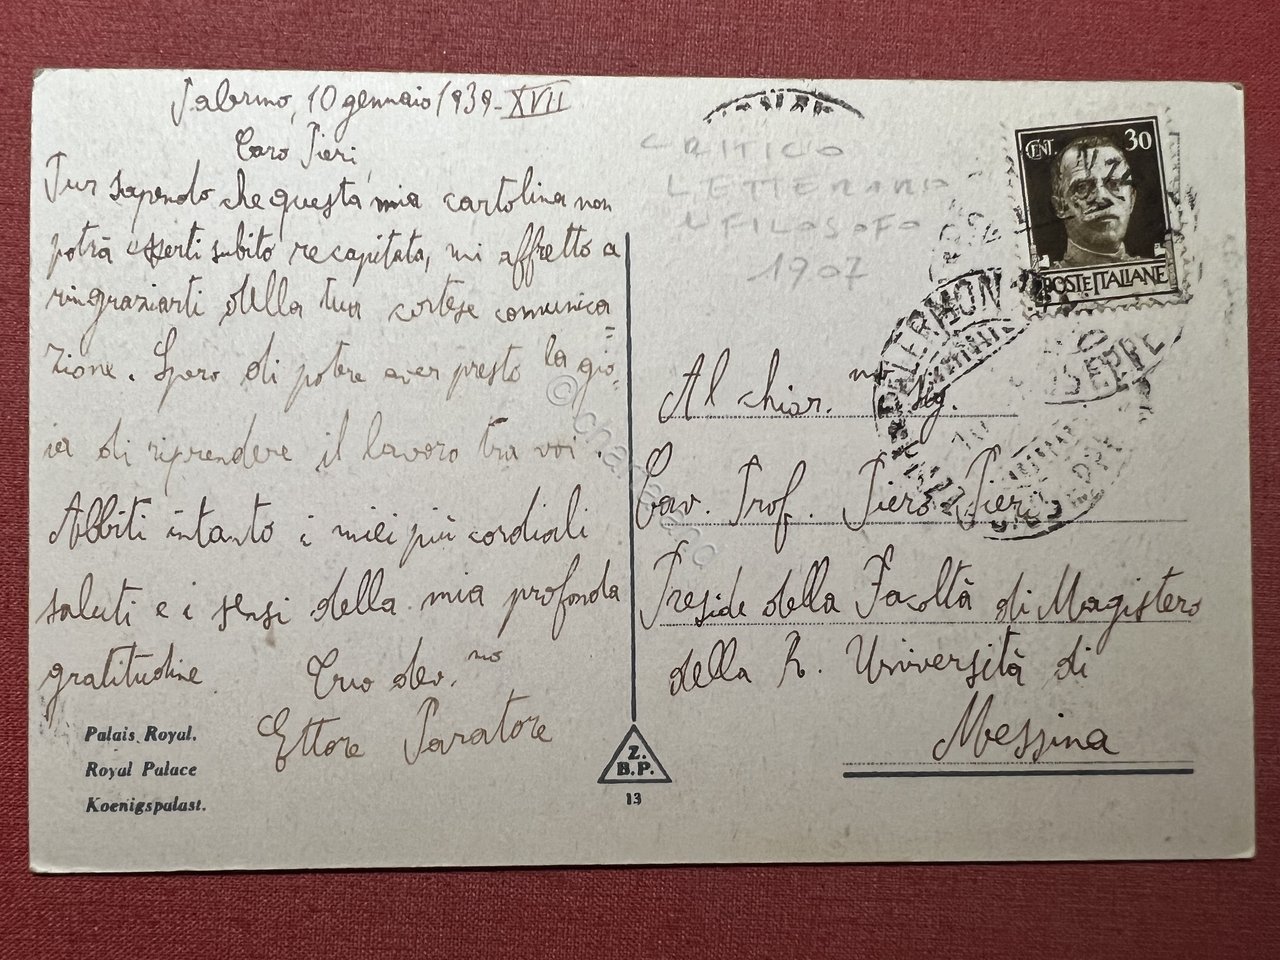 Palermo, 10 gennaio 1939-XVII
Caro Pieri,
Pur sapendo che questa mia cartolina non
potrà esserti subito recapitata, mi affretto a
ringraziarti della tua cortese comunica=
zione. Spero di poter aver presto la gio-
ia di riprendere il lavoro tra voi.
Abbiti intanto i miei più cordiali
saluti e i sensi della mia profonda
gratitudine. Tuo dev.mo
Ettore Paratore
Palais Royal.
Royal Palace
Koenigspalast.
Z.
B.P.
13
CRITICO
LETTERARIO
FILOSOFO
1907
CENT. 30
POSTE ITALIANE
PALERMO
Al chiar.mo Sig.
Cav. Prof. Piero Pieri
Preside della Facoltà di Magistero
della R. Università di
Messina
© charta and